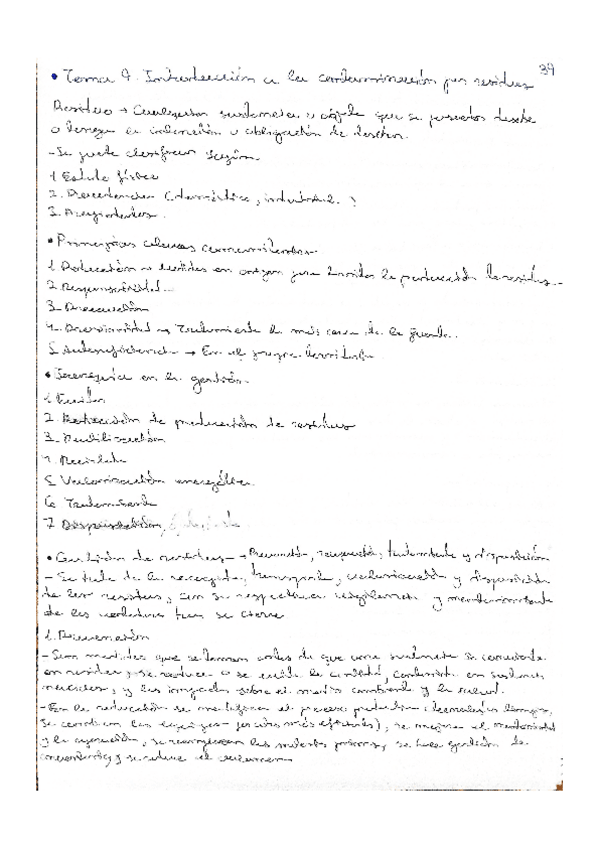 39
• Tema 9. Introducción a la contaminación por residuos
Residuo → Cualquier sustancia u objeto que su poseedor deseche
o tenga la intención u obligación de desechar.
- Se puede clasificar según.
1. Estado físico
2. Procedencia (doméstica, industrial..)
3. Propiedades.
• Principios claves comunitarios.
1. Prevención → medidas en origen para la producción de residuos..
2. Responsabilidad..
3. Precaución
4. Proximidad → Tratamiento lo más cerca de la fuente..
5. Autosuficiencia → En el propio territorio.
• Jerarquía en la gestión.
1. Evitar
2. Reducción de producción de residuos
3. Reutilización
4. Reciclado
5. Valorización energética.
6. Tratamiento
7. Disposición
• Gestión de residuos → Prevención, recuperación, tratamiento y disposición
- Se trata de la recogida, transporte, valorización y disposición
de los residuos, con su respectiva vigilancia y mantenimiento
de los vertederos tras su cierre
1. Prevención
- Son medidas que se toman antes de que una sustancia se convierta
en residuo, y se reduce o se evita la cantidad, contenido en sustancias
nocivas, y los impactos sobre el medio ambiente y la salud.
- En la reducción se modifican el proceso productivo (tecnologías limpias,
se cambian los equipos por otros más eficientes), se mejora el mantenimiento
y la operación, se reemplazan las materias primas, se hace gestión de
inventarios y se reduce el volumen